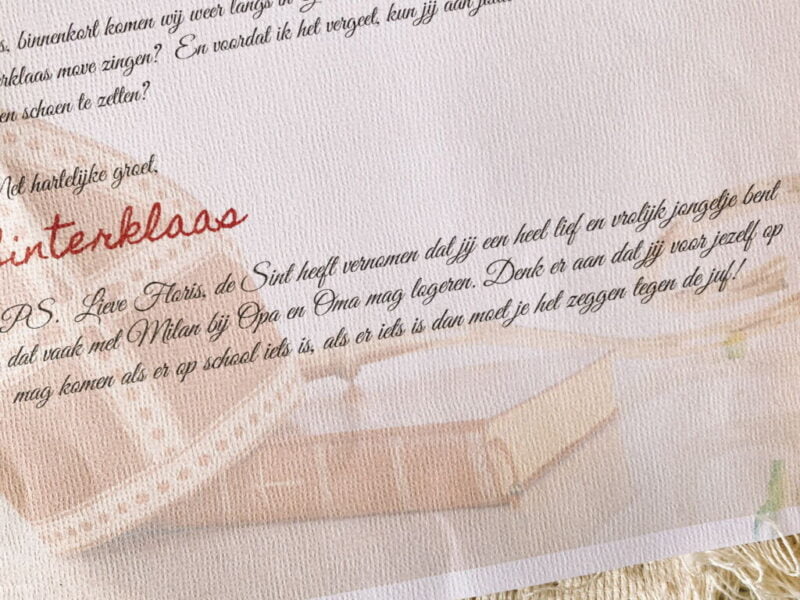 binnenkort komen wij weer langs in
move zingen? En voordat ik het vergeet, kun jij aan
schoen te zetten?
Met hartelijke groet,
Sinterklaas
PS. Lieve Floris, de Sint heeft vernomen dat jij een heel lief en vrolijk jongetje bent
dat vaak met Milan bij Opa en Oma mag logeren. Denk er aan dat jij voor jezelf op
mag komen als er op school iets is, als er iets is dan moet je het zeggen tegen de juf!